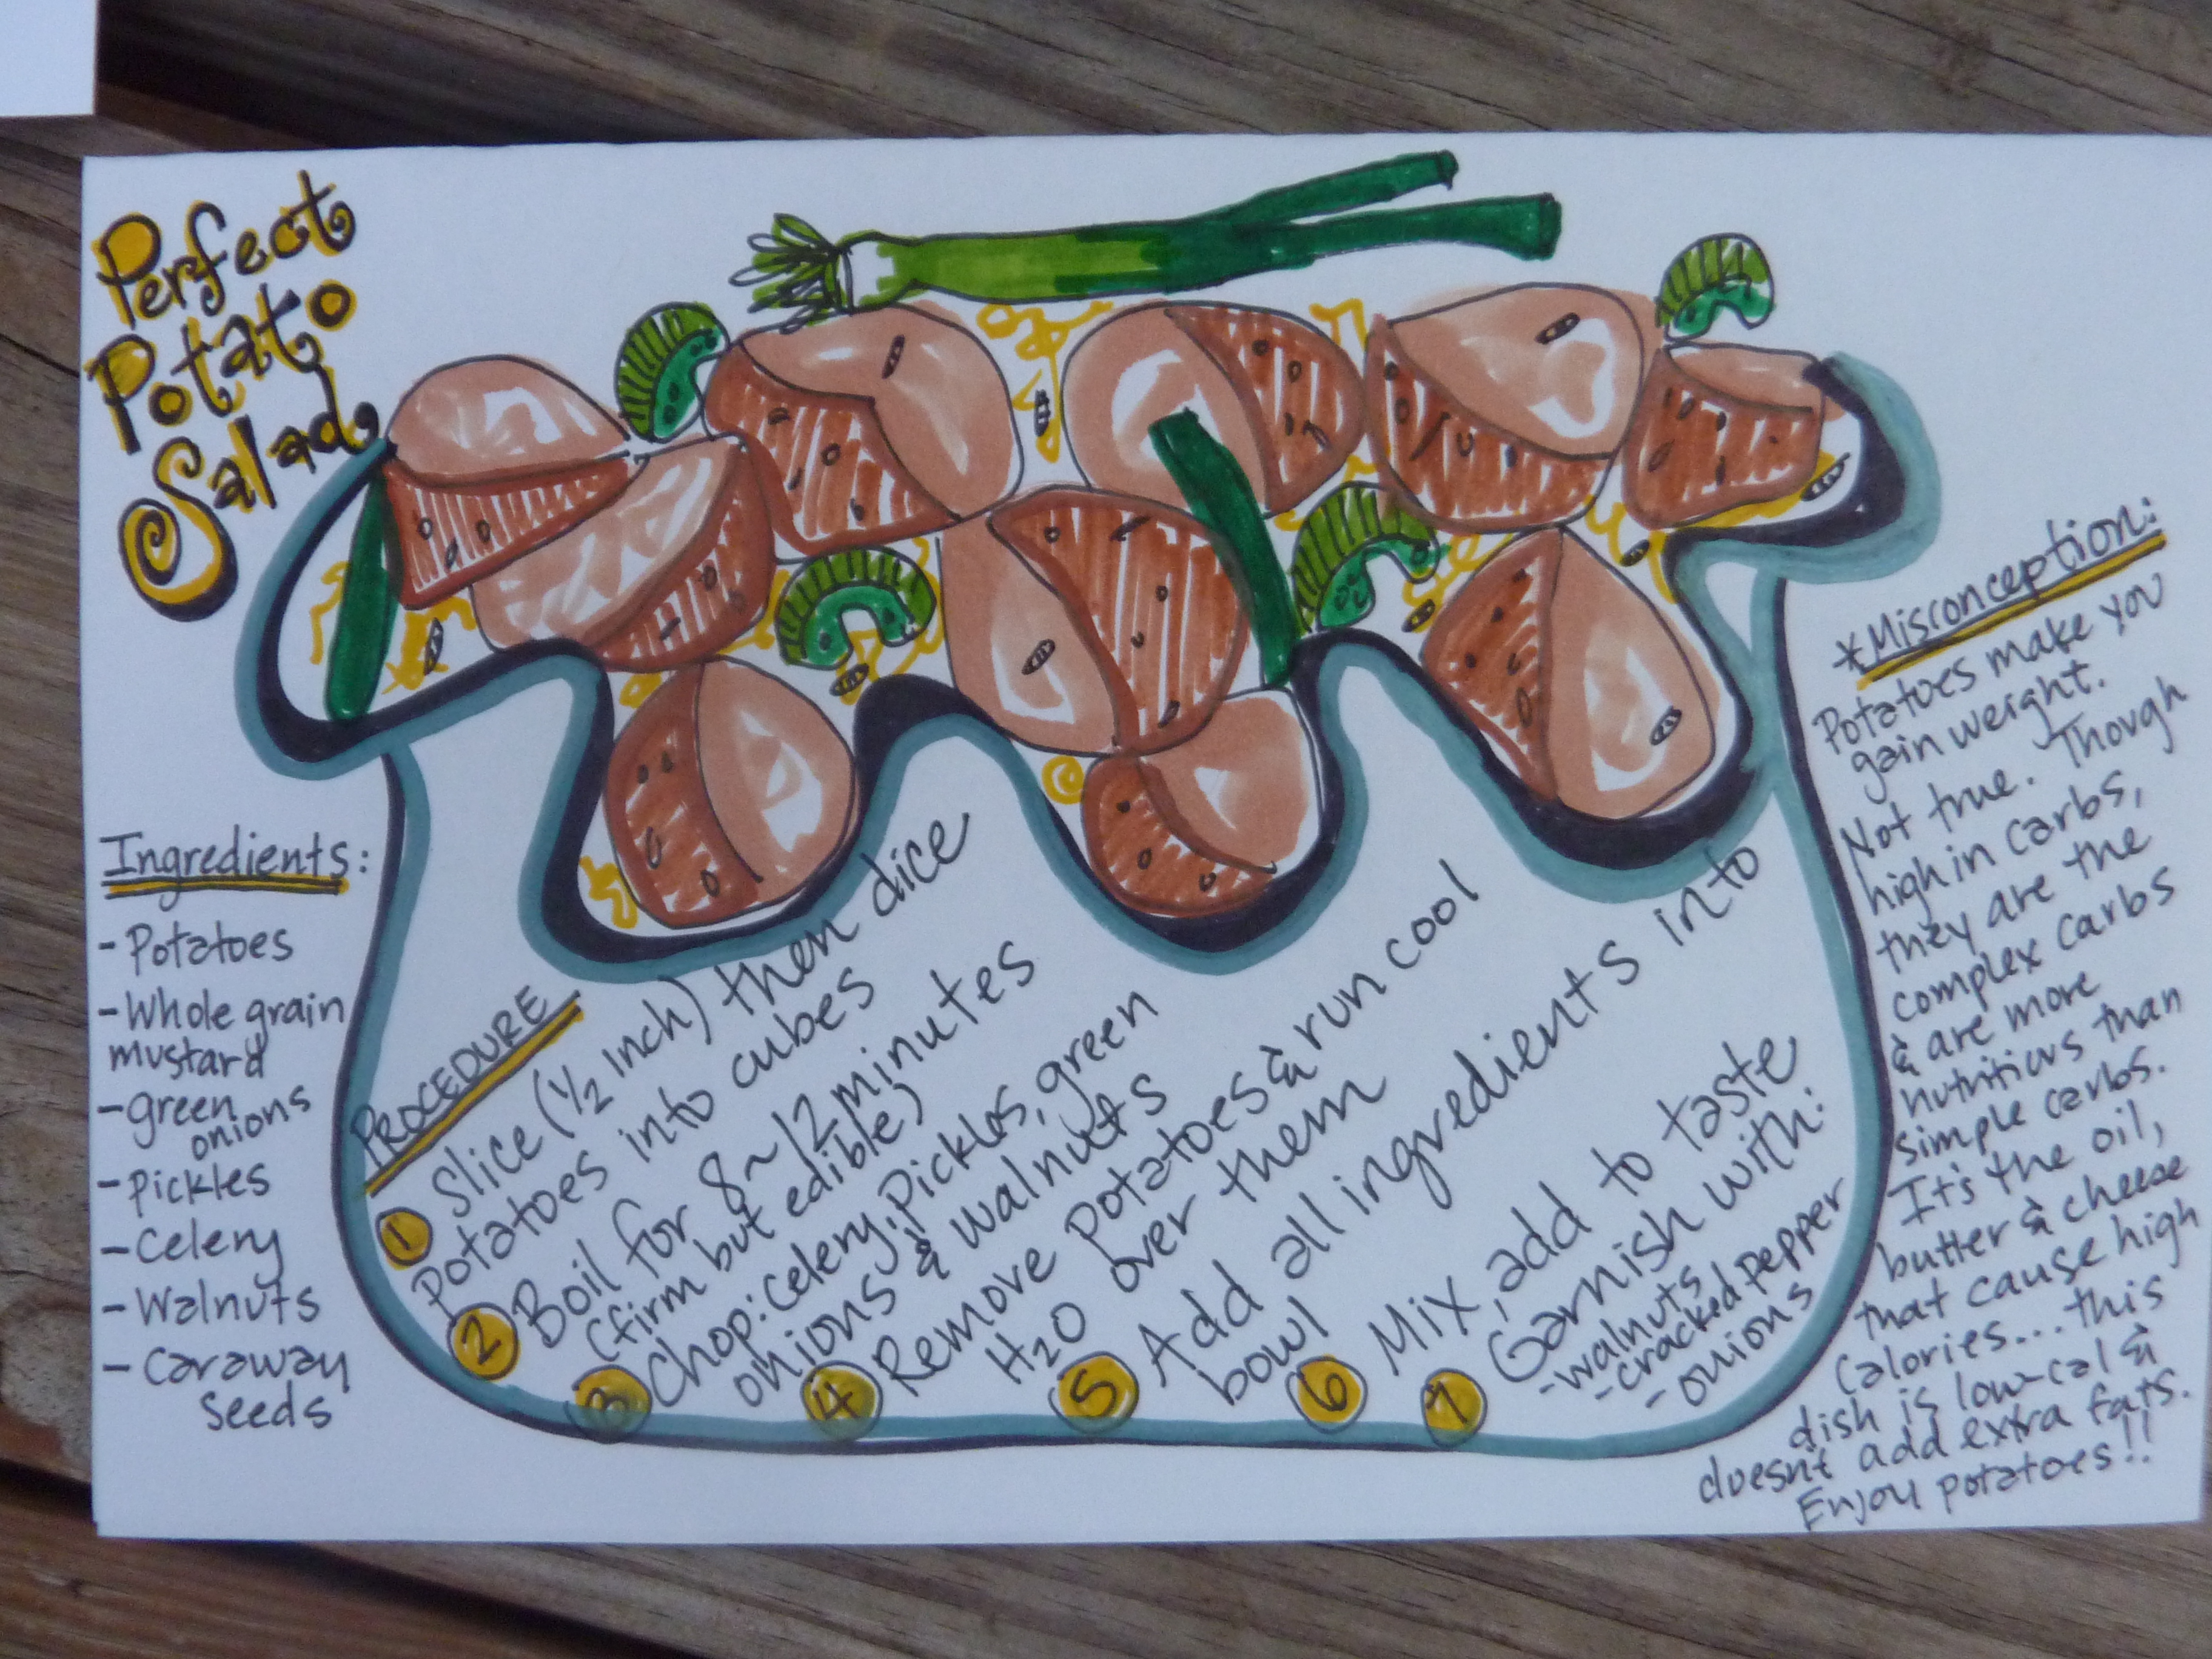 Perfect
Potato
Salad
Ingredients:
- Potatoes
- Whole grain
mustard
- green
onions
- Pickles
- Celery
- Walnuts
- Caraway
Seeds
PROCEDURE
1 Slice (1/2 inch) then dice
potatoes into cubes
2 Boil for 8~12 minutes
(firm but edible)
3 Chop: Celery, Pickles, green
onions & walnuts
4 Remove potatoes & run cool
H2O over them
5 Add all ingredients into
bowl
6 Mix, add to taste
7 Garnish with:
- walnuts
- cracked pepper
- onions
*Misconception:
Potatoes make you
gain weight.
Not true. Though
high in carbs,
they are the
complex carbs
& are more
nutritious than
simple carbs.
It's the oil,
butter & cheese
that cause high
calories....this
dish is low-cal &
doesn't add extra fats.
Enjoy potatoes!!